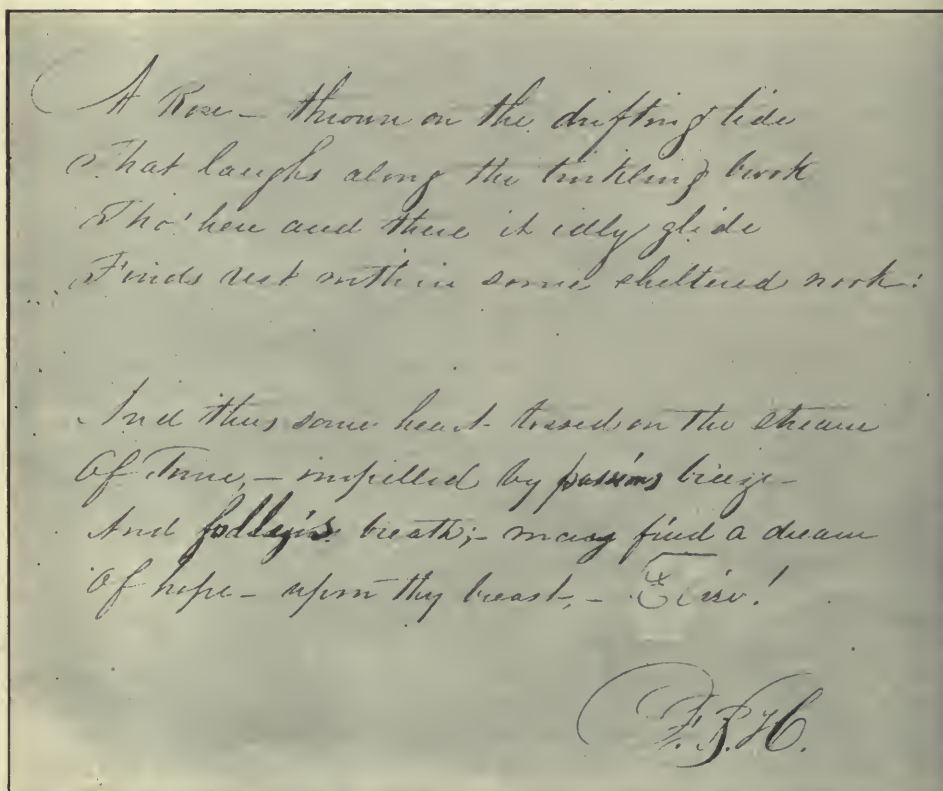 A Rose – thrown on the drifting tide
That laughs along the tinkling brook
Tho' here and there it idly glide
Finds rest within some sheltered nook:
And thus some heart tossed on the stream
Of Time, – impelled by passions breeze –
And folly's breath; – may find a dream
Of hope – upon thy breast, –